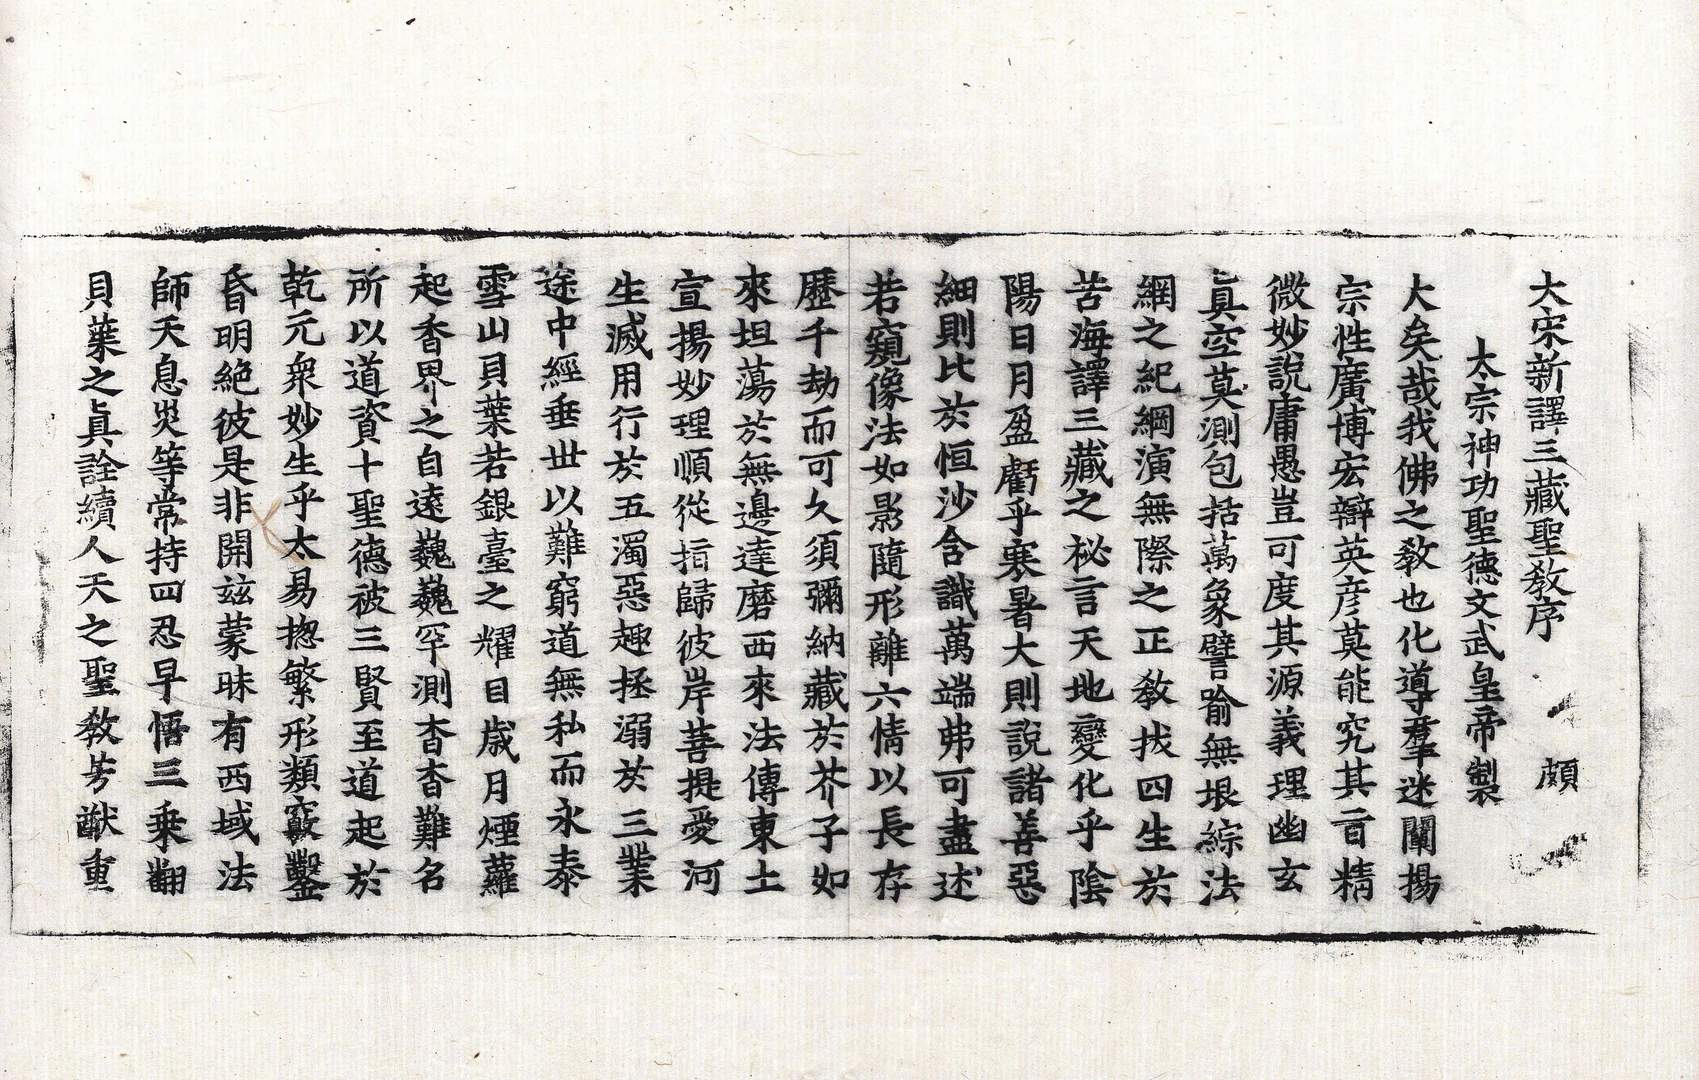 大宋新譯三藏聖教序 頗
太宗神功聖德文武皇帝製
大矣哉我佛之教也化導羣迷闡揚
宗性廣博宏辯英彥莫能究其旨精
微妙說庸愚豈可度其源義理幽玄
眞空莫測包括萬象譬喻無垠綜法
網之紀綱演無際之正教拔四生於
苦海譯三藏之祕言天地變化乎陰
陽日月盈虧乎寒暑大則說諸善惡
細則比於恒沙含識萬端弗可盡述
若窺像法如影隨形離六情以長存
歷千劫而可久須彌納藏於芥子如
來坦蕩於無邊達磨西來法傳東土
宣揚妙理順從指歸彼岸菩提愛河
生滅用行於五濁惡趣拯溺於三業
途中經垂世以難窮道無私而永泰
雪山貝葉若銀臺之耀目歲月煙蘿
起香界之自遠巍巍罕測杳杳難名
所以道資十聖德被三賢至道起於
乾元衆妙生乎太易揔繁形類竅鑿
昏明絶彼是非開兹蒙昧有西域法
師天息炎等常持四忍早悟三乘翻
貝葉之眞詮續人天之聖教芳猷重